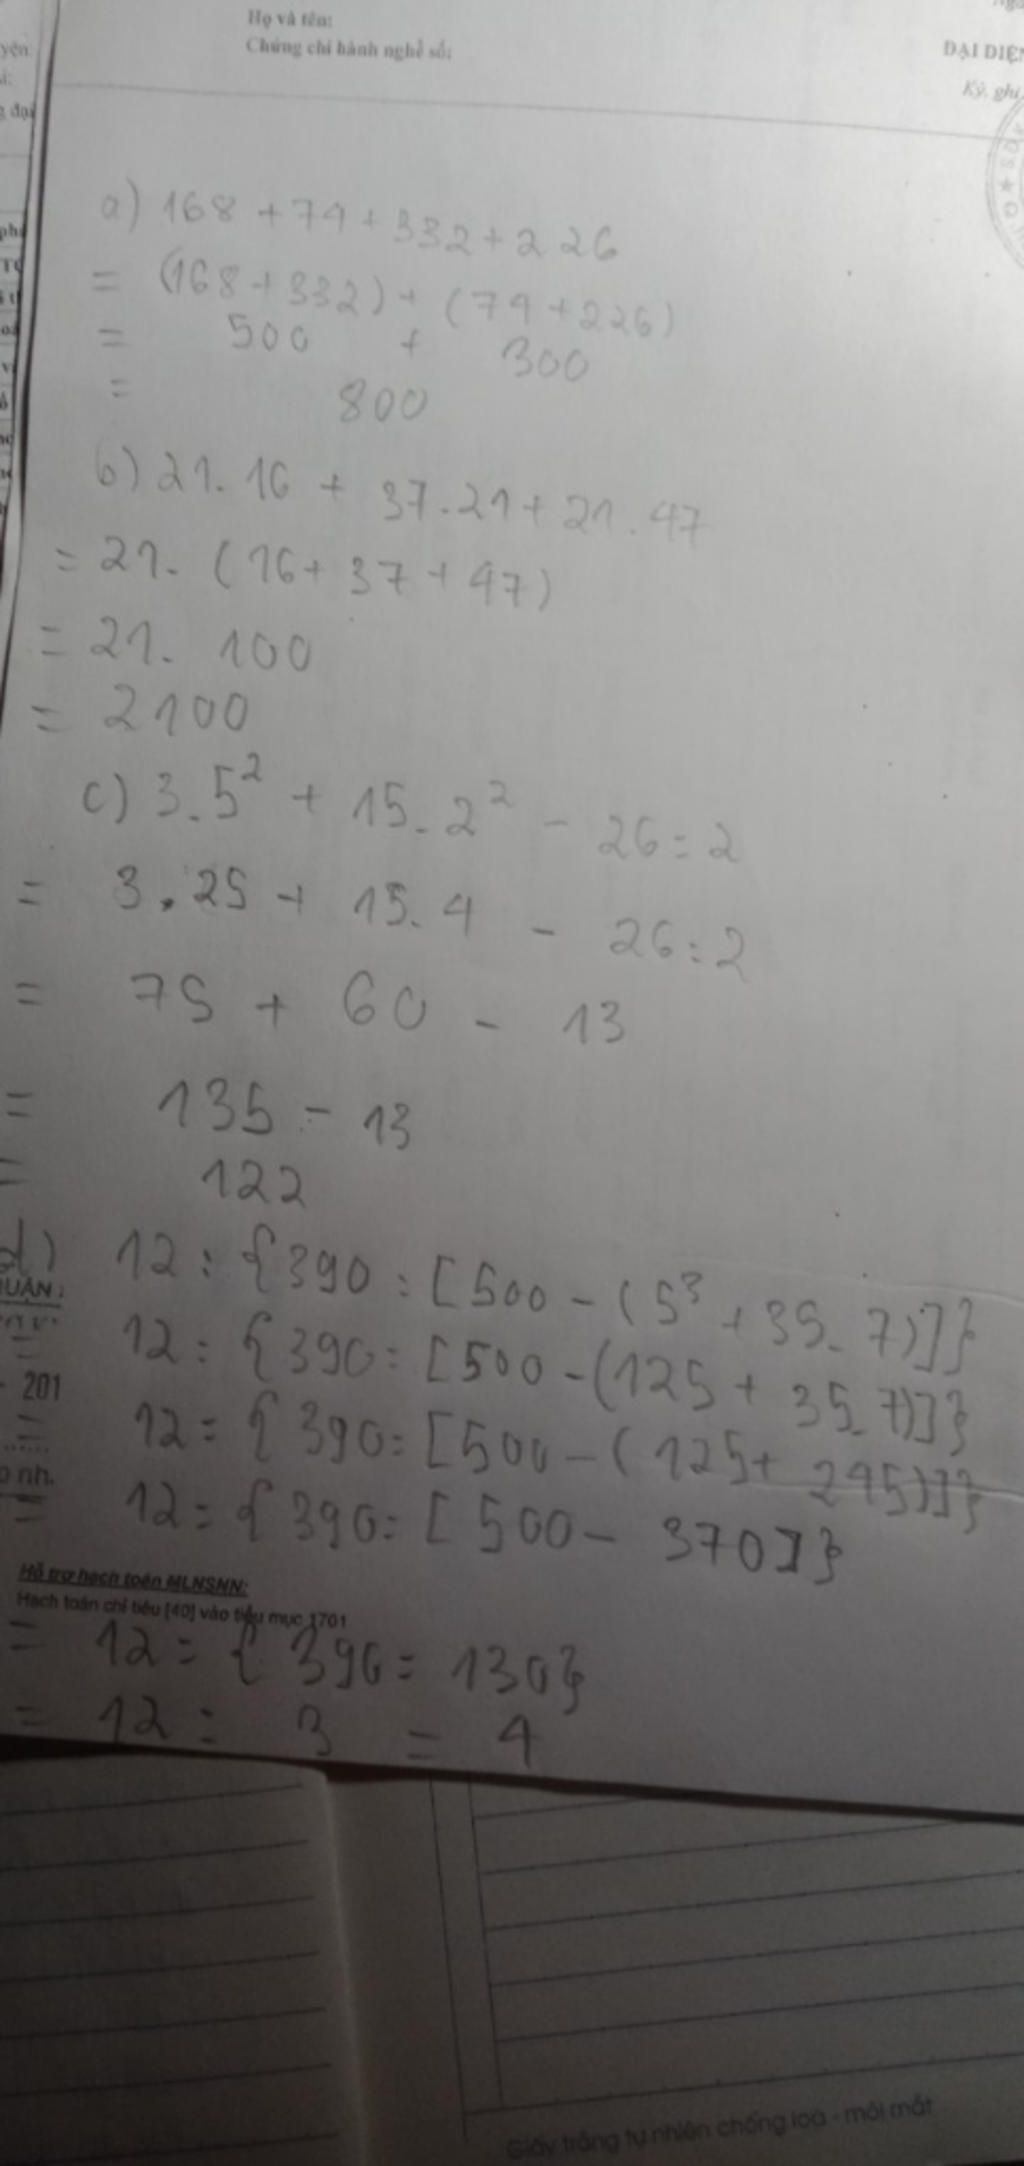 Họ và tên:
Chứng chỉ hành nghề số:
ĐẠI DIỆN
Ký, ghi
a) 168 + 74 + 332 + 226
= (168 + 332) + (74 + 226)
= 500 + 300
= 800
b) 21. 16 + 37. 21 + 21. 47
= 21. (16 + 37 + 47)
= 21. 100
= 2100
c) 3. 5² + 15. 2² - 26 : 2
= 3. 25 + 15. 4 - 26 : 2
= 75 + 60 - 13
= 135 - 13
= 122
d) 12 : { 390 : [ 500 - ( 5³ + 35. 7)]}
UẬN :
= 12 : { 390 : [ 500 - (125 + 35. 7)]}
- 201
= 12 : { 390 : [ 500 - ( 125 + 245)]}
nh.
= 12 : { 390 : [ 500 - 370 ] }
Hỗ trợ hạch toán MLNSNN:
Hạch toán chỉ tiêu [40] vào tiểu mục 1701
= 12 : { 390 : 130 }
= 12 : 3 = 4
Giấy trắng tự nhiên chống loá - mỏi mắt